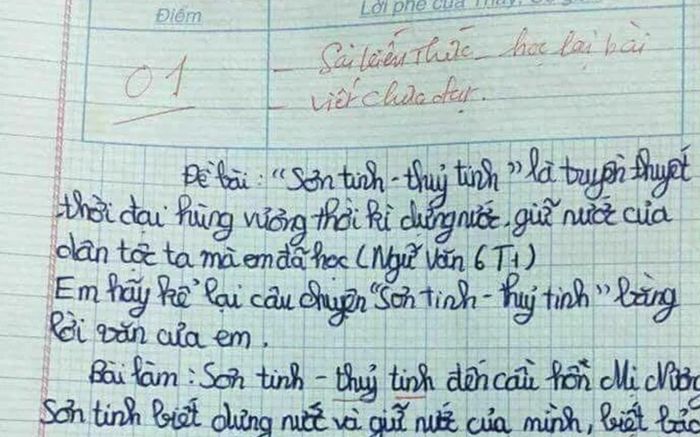 Điểm
Lời phê của Thầy, Cô g
01
- Sai kiến thức - học lại bài
- viết chưa đạt.
Đề bài: "Sơn tinh - thuỷ tinh" là truyền thuyết
thời đại hùng vương thời kì dựng nước, giữ nước của
dân tộc ta mà em đã học (Ngữ Văn 6 T1)
Em hãy kể lại câu chuyện "Sơn tinh - thuỷ tinh" bằng
lời văn của em.
Bài làm: Sơn tinh - thuỷ tinh đến cầu hôn Mị Nương
Sơn tinh biết dựng nước và giữ nước của mình, biết bảo